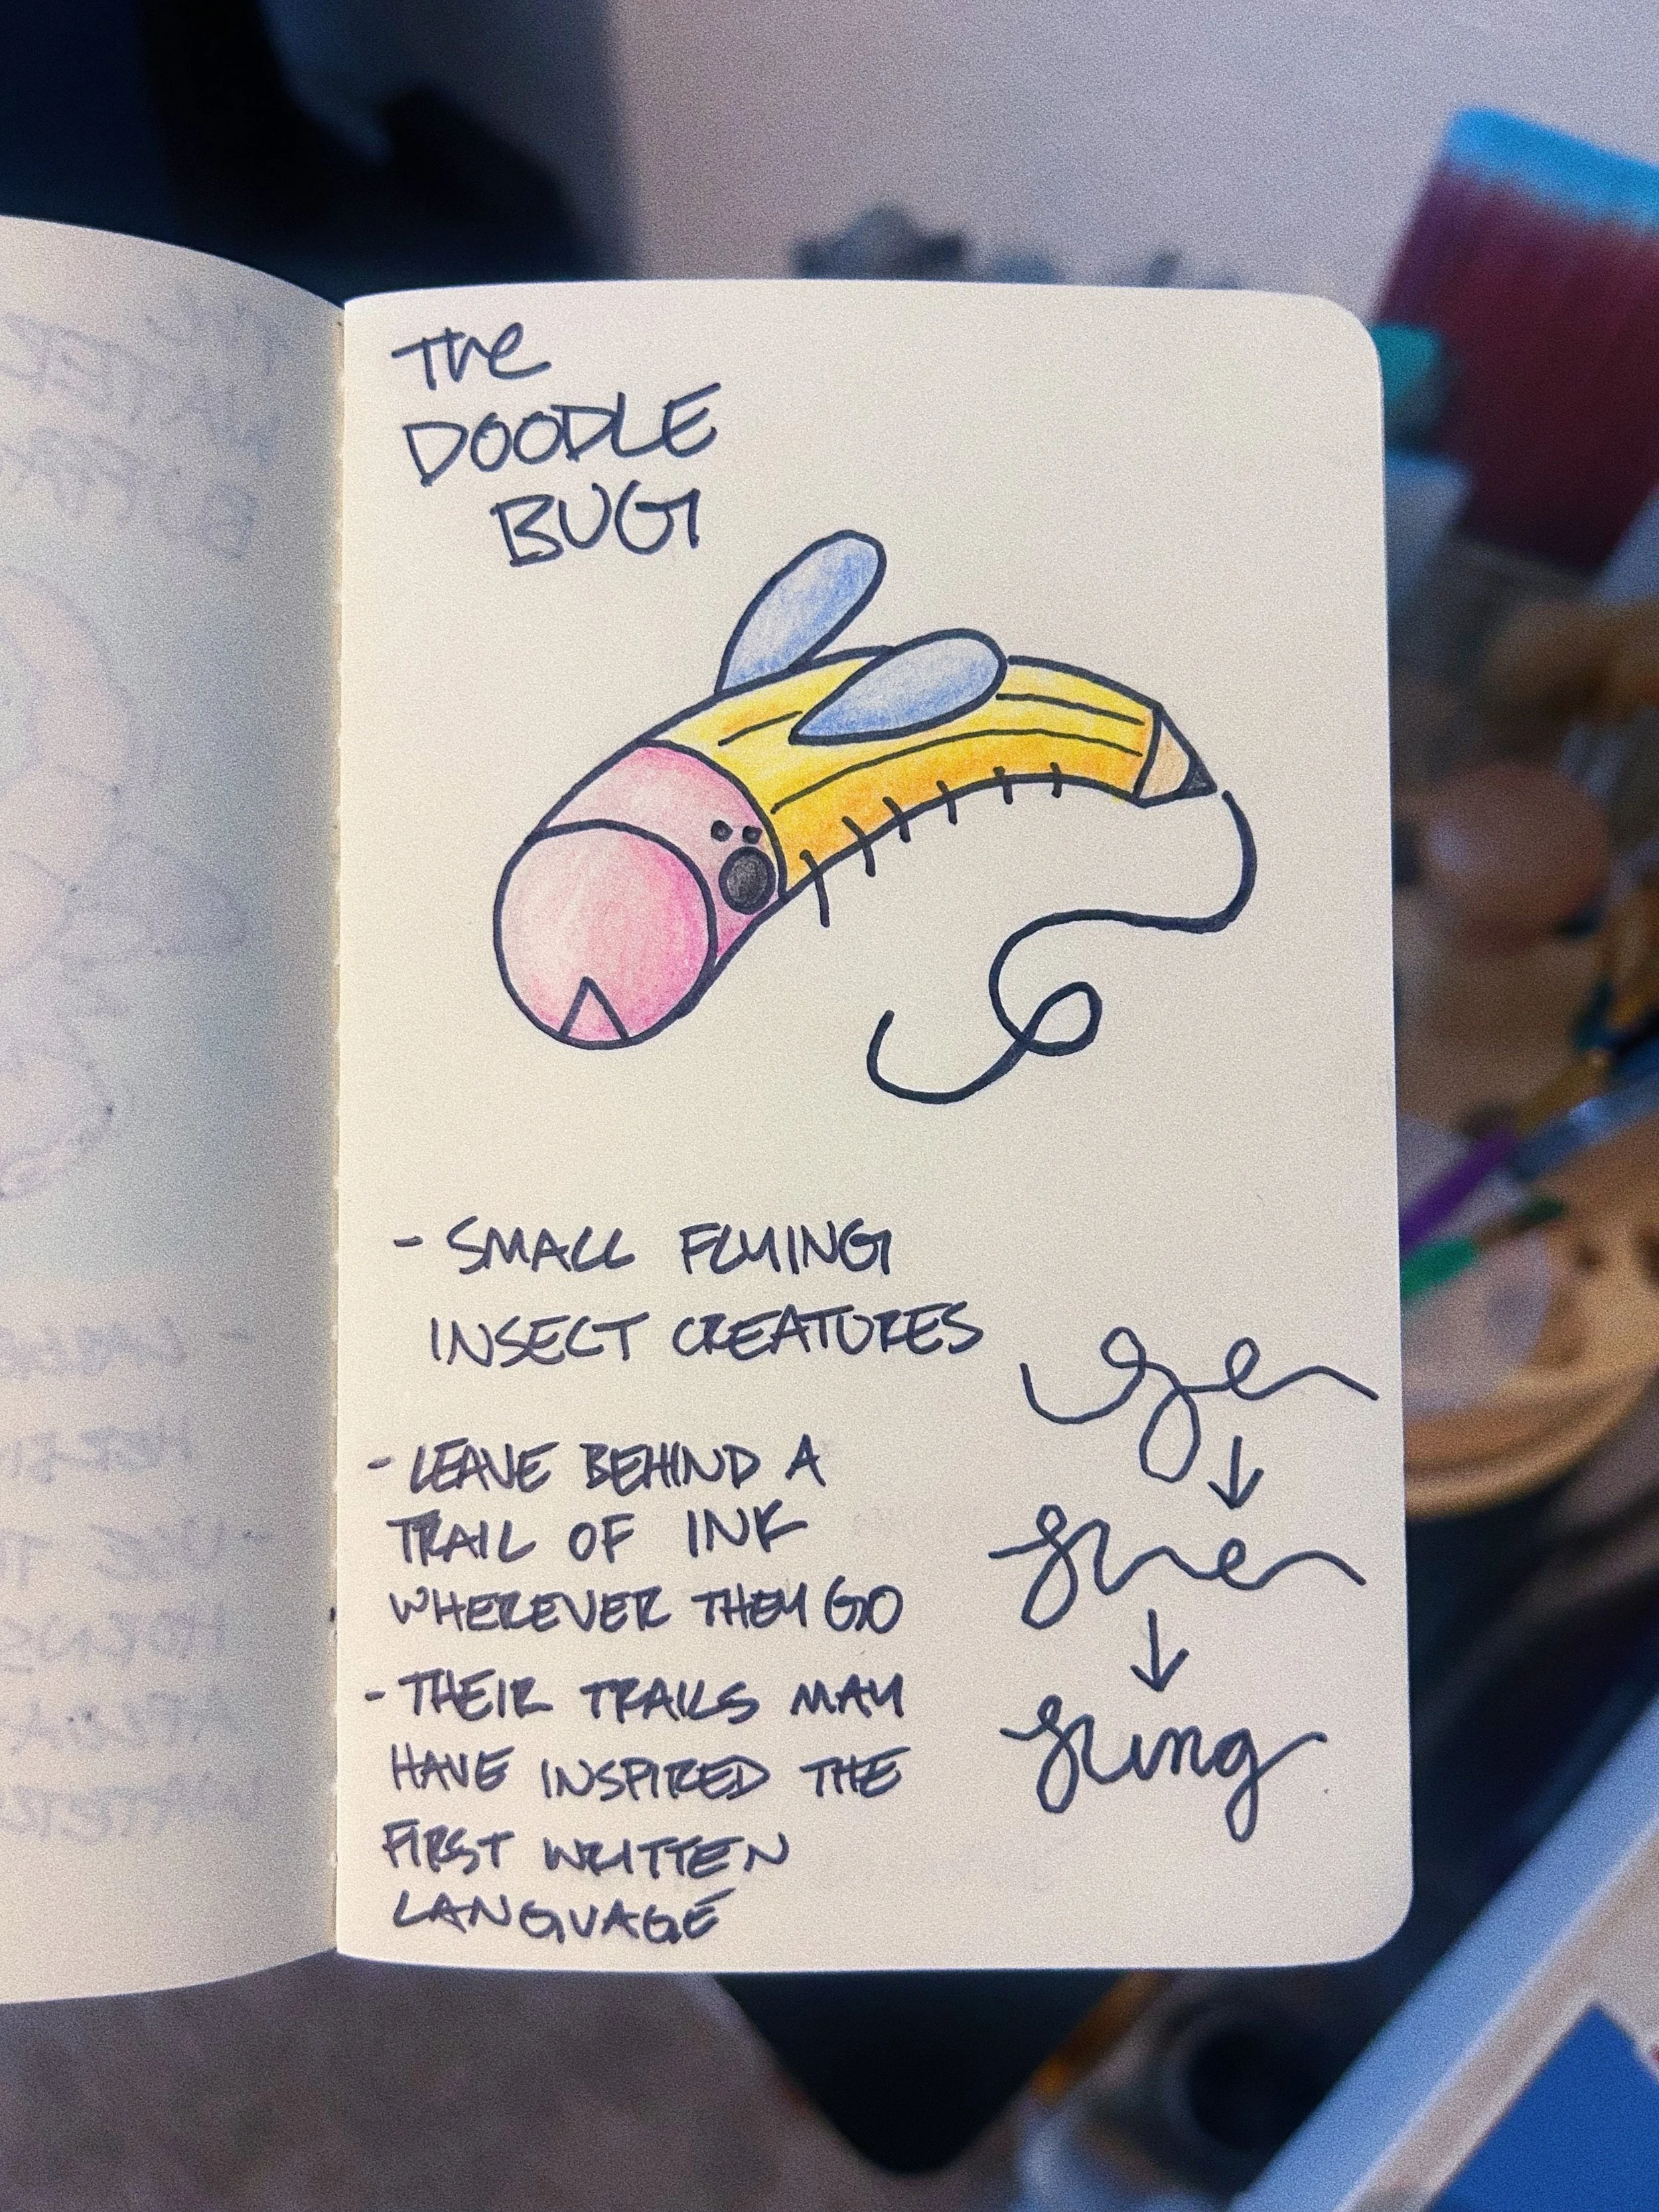 The
DOODLE
BUG
- SMALL FLYING
INSECT CREATURES
- LEAVE BEHIND A
TRAIL OF INK
WHEREVER THEY GO
- THEIR TRAILS MAY
HAVE INSPIRED THE
FIRST WRITTEN
LANGUAGE